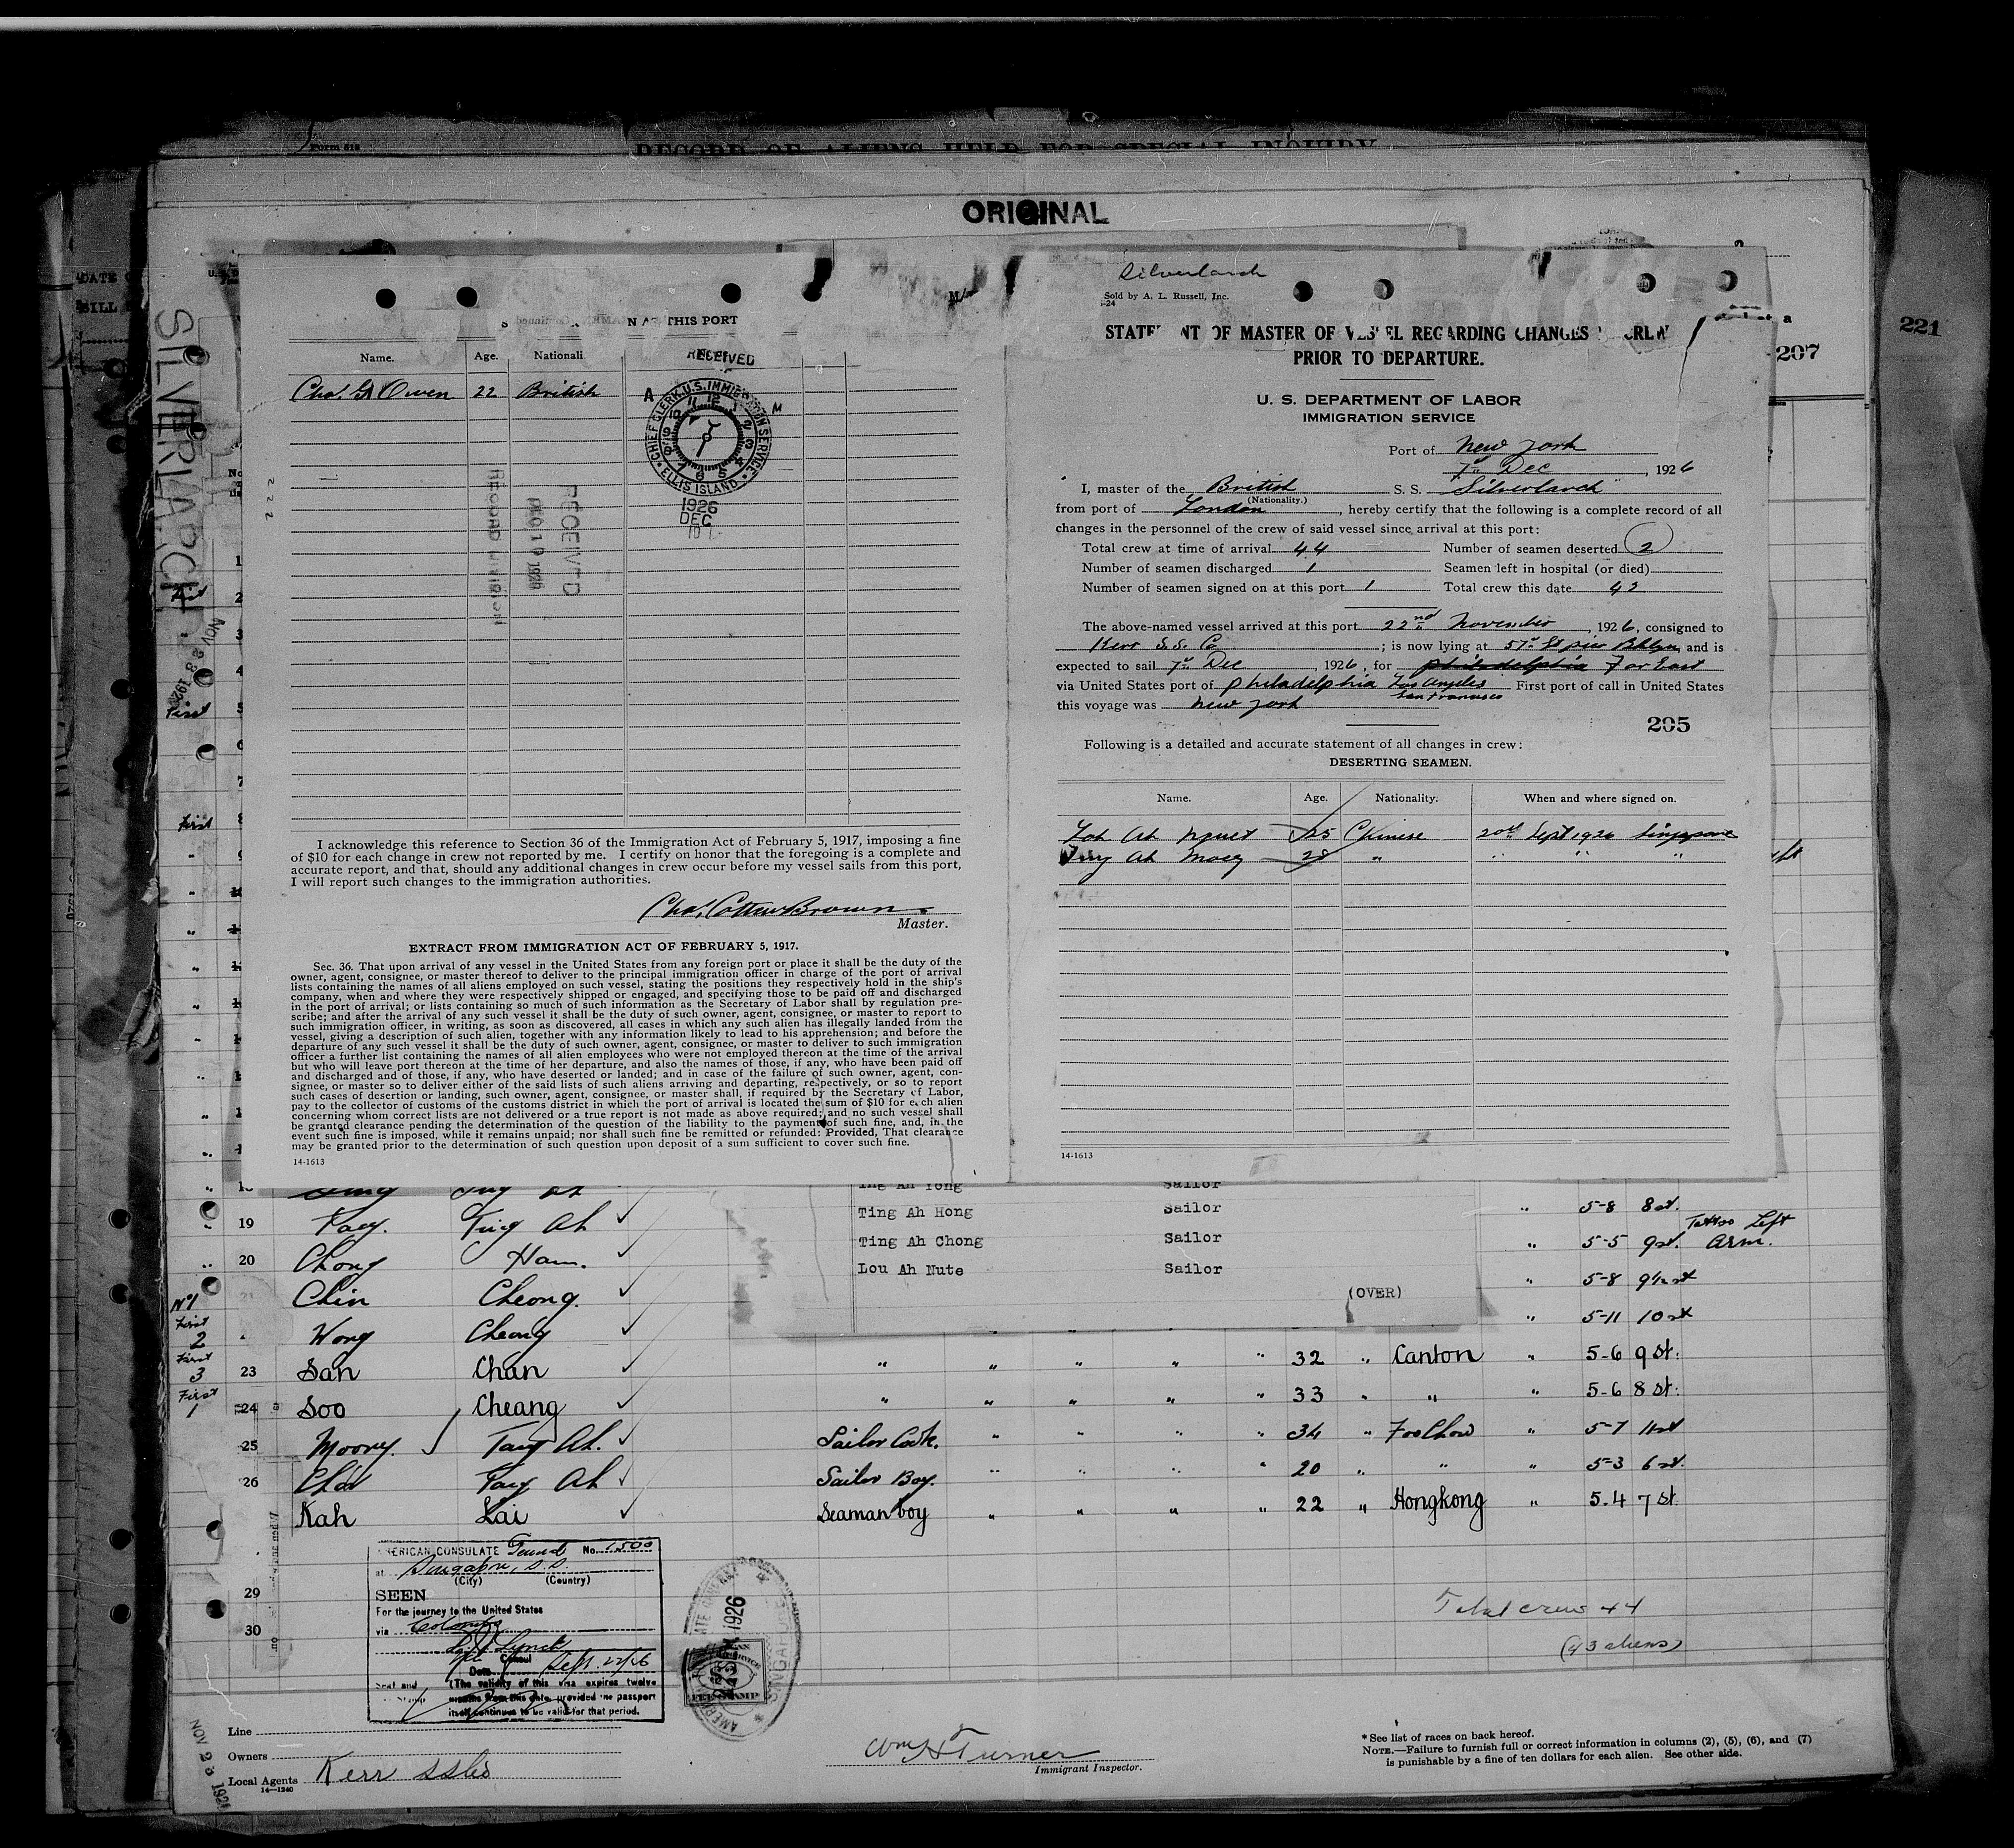 Form 518
RECORD OF ALIENS HELD FOR SPECIAL INQUIRY
ORIGINAL
221
207
SILVERLARCH
NOV 23 192
N AT THIS PORT
Name. Age. Nationali
Chas. G. Owen 22 British
RECEIVED
CHIEF CLERK, U.S. IMMIGRATION SERVICE
ELLIS ISLAND
1926
DEC
RECEIVED
DEC 10 1926
RECORD DIVISION
I acknowledge this reference to Section 36 of the Immigration Act of February 5, 1917, imposing a fine
of $10 for each change in crew not reported by me. I certify on honor that the foregoing is a complete and
accurate report, and that, should any additional changes in crew occur before my vessel sails from this port,
I will report such changes to the immigration authorities.
Chas. Cotten Brown
Master.
EXTRACT FROM IMMIGRATION ACT OF FEBRUARY 5, 1917.
Sec. 36. That upon arrival of any vessel in the United States from any foreign port or place it shall be the duty of the
owner, agent, consignee, or master thereof to deliver to the principal immigration officer in charge of the port of arrival
lists containing the names of all aliens employed on such vessel, stating the positions they respectively hold in the ship's
company, when and where they were respectively shipped or engaged, and specifying those to be paid off and discharged
in the port of arrival; or lists containing so much of such information as the Secretary of Labor shall by regulation pre-
scribe; and after the arrival of any such vessel it shall be the duty of such owner, agent, consignee, or master to report to
such immigration officer, in writing, as soon as discovered, all cases in which any such alien has illegally landed from the
vessel, giving a description of such alien, together with any information likely to lead to his apprehension; and before the
departure of any such vessel it shall be the duty of such owner, agent, consignee, or master to deliver to such immigration
officer a further list containing the names of all alien employees who were not employed thereon at the time of the arrival
but who will leave port thereon at the time of her departure, and also the names of those, if any, who have been paid off
and discharged and of those, if any, who have deserted or landed; and in case of the failure of such owner, agent, con-
signee, or master so to deliver either of the said lists of such aliens arriving and departing, respectively, or so to report
such cases of desertion or landing, such owner, agent, consignee, or master shall, if required by the Secretary of Labor,
pay to the collector of customs of the customs district in which the port of arrival is located the sum of $10 for each alien
concerning whom correct lists are not delivered or a true report is not made as above required; and no such vessel shall
be granted clearance pending the determination of the question of the liability to the payment of such fine, and, in the
event such fine is imposed, while it remains unpaid; nor shall such fine be remitted or refunded: Provided, That clearance
may be granted prior to the determination of such question upon deposit of a sum sufficient to cover such fine.
14-1613
Silverlarch
Sold by A. L. Russell, Inc.
STATEMENT OF MASTER OF VESSEL REGARDING CHANGES IN CREW
PRIOR TO DEPARTURE.
U. S. DEPARTMENT OF LABOR
IMMIGRATION SERVICE
Port of New York
7th Dec, 1926
I, master of the British S. S. "Silverlarch"
(Nationality.)
from port of London, hereby certify that the following is a complete record of all
changes in the personnel of the crew of said vessel since arrival at this port:
Total crew at time of arrival 44 Number of seamen deserted 2
Number of seamen discharged 1 Seamen left in hospital (or died)
Number of seamen signed on at this port 1 Total crew this date 42
The above-named vessel arrived at this port 22nd November, 1926, consigned to
Kerr S.S. Co; is now lying at 57th St pier Bklyn, and is
expected to sail 7th Dec, 1926, for Philadelphia Far East
via United States port of Philadelphia Los Angeles San Francisco First port of call in United States
this voyage was New York
205
Following is a detailed and accurate statement of all changes in crew:
DESERTING SEAMEN.
Name. Age. Nationality. When and where signed on.
Ah 25 Chinese 20th Sept 1926 Singapore
Ah 28 " " " "
14-1613
Ing Ah Yong Sailor
Ting Ah Hong Sailor
Ting Ah Chong Sailor
Lou Ah Nute Sailor
(OVER)
19 Ting Ah " 5-8 8st.
20 Chong Ham. " 5-5 9st. Tattoo Left Arm.
Chin Cheong. " 5-8 9½st
Wong Cheong " 5-11 10st
23 San Chan " " " " " 32 " Canton " 5-6 9st.
24 Soo Cheang " " " " " 33 " " " 5-6 8st.
25 Moory. Tang Ah. Sailor Cook. " " " " 34 " FooChow " 5-7 11st
26 Ah Sailor Boy. " " " " 20 " " " 5-3 6st.
Kah Lai Seaman boy " " " " 22 " Hongkong " 5.4 7st.
29
30
AMERICAN CONSULATE General No. 1500
at Singapore, S.S.
(City) (Country)
SEEN
For the journey to the United States
via Colombo
Lynch
Consul
Date Sept 22/26
(The validity of this visa expires twelve
months from this date, provided the passport
itself continues to be valid for that period.
Total crew 44
(43 aliens)
Line
Owners
Local Agents Kerr SSCo
14-1240
NOV 23 192
Wm H Turner
Immigrant Inspector.
* See list of races on back hereof.
NOTE.—Failure to furnish full or correct information in columns (2), (5), (6), and (7)
is punishable by a fine of ten dollars for each alien. See other side.